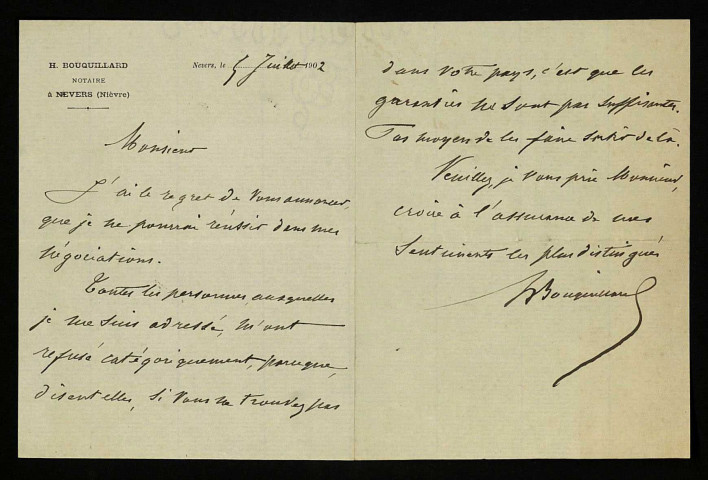 H. BOUQUILLARD
NOTAIRE
à NEVERS (Nièvre)
Nevers, le 5 Juillet 1902
Monsieur
J'ai le regret de vous annoncer,
que je ne pourrai réussir dans mes
négociations.
Toutes les personnes, auxquelles
je me suis adressé, m'ont
refusé catégoriquement, parceque,
disent elles, si vous ne trouvez pas
dans votre pays, c'est que les
garanties ne sont pas suffisantes.
Pas moyen de les faire sortir de là.
Veuillez, je vous prie Monsieur,
croire à l'assurance de mes
sentiments les plus distingués
HBouquillard